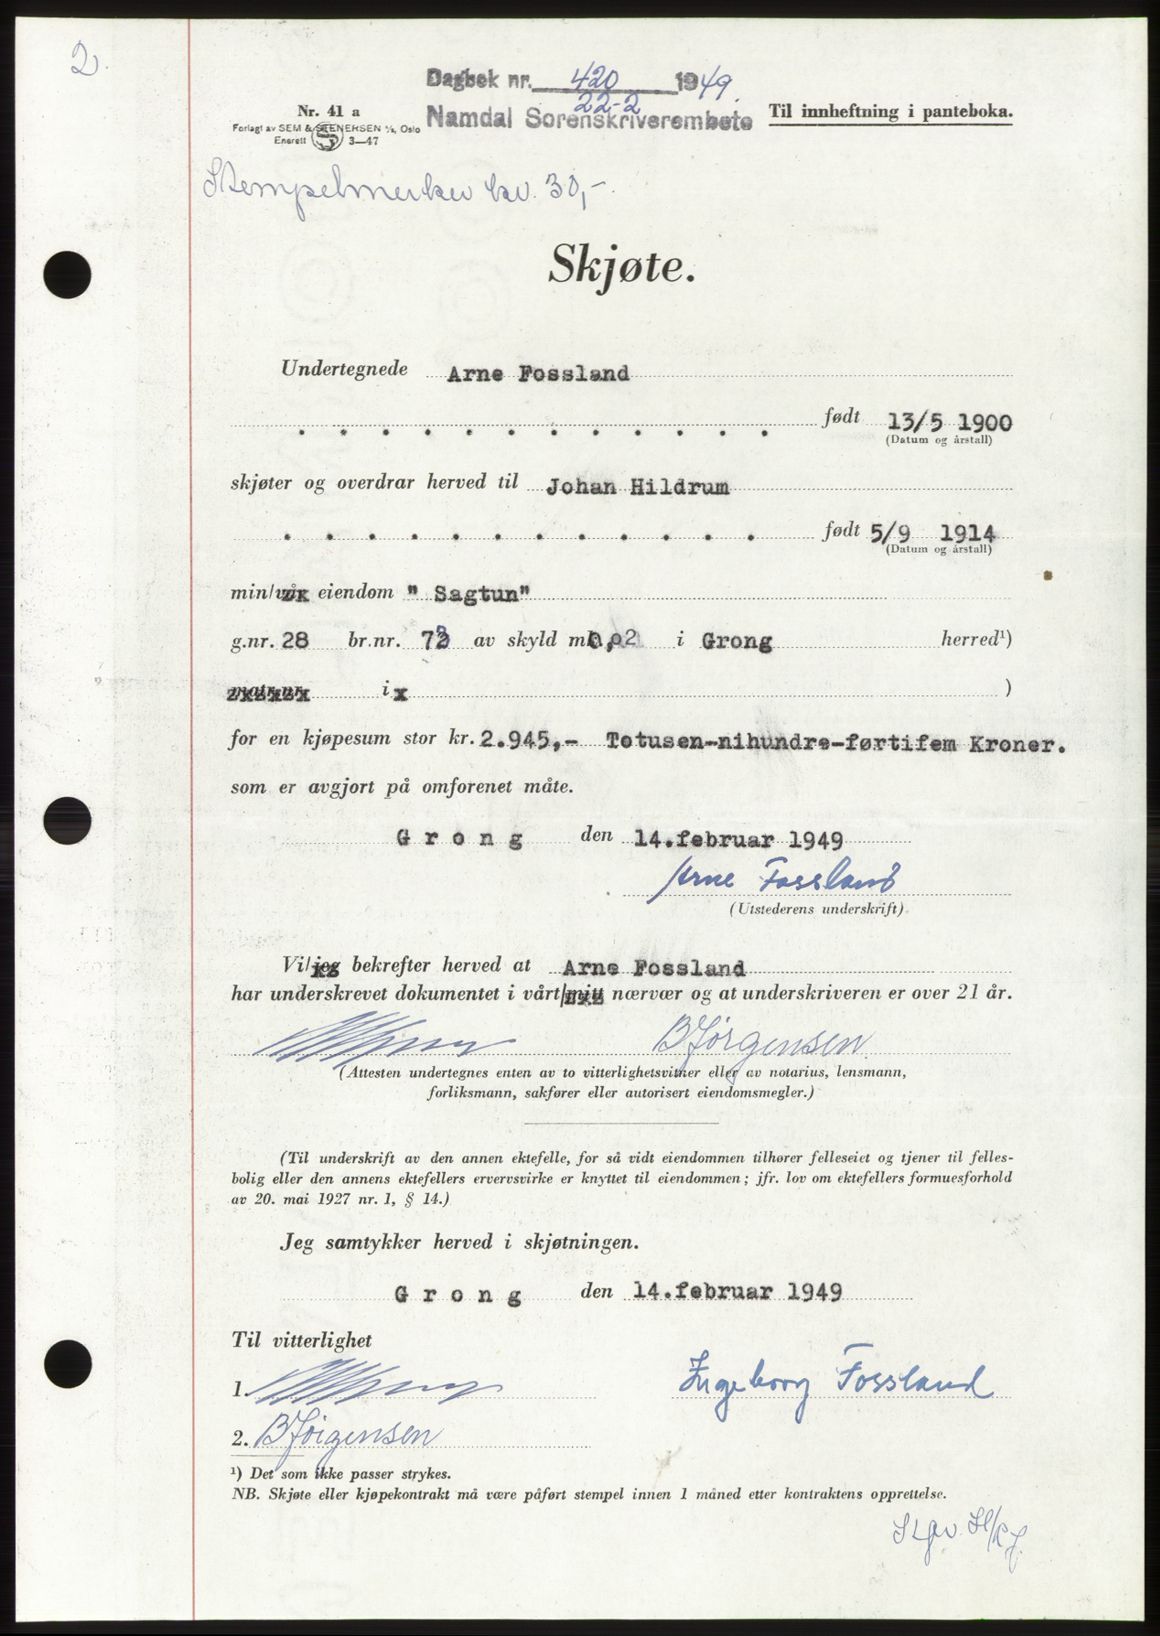 2.
Dagbok nr. 420 1949.
22-2
Namdal Sorenskriverembete
Til innheftning i panteboka.
Nr. 41 a
Forlagt av SEM & STENERSEN A/S, Oslo
Enerett S 3—47
Stempelmerker kr. 30,-.
Skjøte.
Undertegnede Arne Fossland
født 13/5 1900
(Datum og årstall)
skjøter og overdrar herved til Johan Hildrum
født 5/9 1914
(Datum og årstall)
min/vår eiendom " Sagtun"
g.nr. 28 br.nr. 72 av skyld m 0,02 i Grong herred¹)
matr.nr. i x )
for en kjøpesum stor kr. 2.945,- Totusen-nihundre-førtifem Kroner.
som er avgjort på omforenet måte.
Grong den 14.februar 1949
Arne Fossland
(Utstederens underskrift)
Vi/jeg bekrefter herved at Arne Fossland
har underskrevet dokumentet i vårt/mitt nærvær og at underskriveren er over 21 år.
BJørgensen
(Attesten undertegnes enten av to vitterlighetsvitner eller av notarius, lensmann,
forliksmann, sakfører eller autorisert eiendomsmegler.)
(Til underskrift av den annen ektefelle, for så vidt eiendommen tilhører felleseiet og tjener til felles-
bolig eller den annens ektefellers ervervsvirke er knyttet til eiendommen; jfr. lov om ektefellers formuesforhold
av 20. mai 1927 nr. 1, § 14.)
Jeg samtykker herved i skjøtningen.
Grong den 14.februar 1949
Til vitterlighet
1.
Ingeborg Fossland
2. BJørgensen
¹) Det som ikke passer strykes.
NB. Skjøte eller kjøpekontrakt må være påført stempel innen 1 måned etter kontraktens opprettelse.